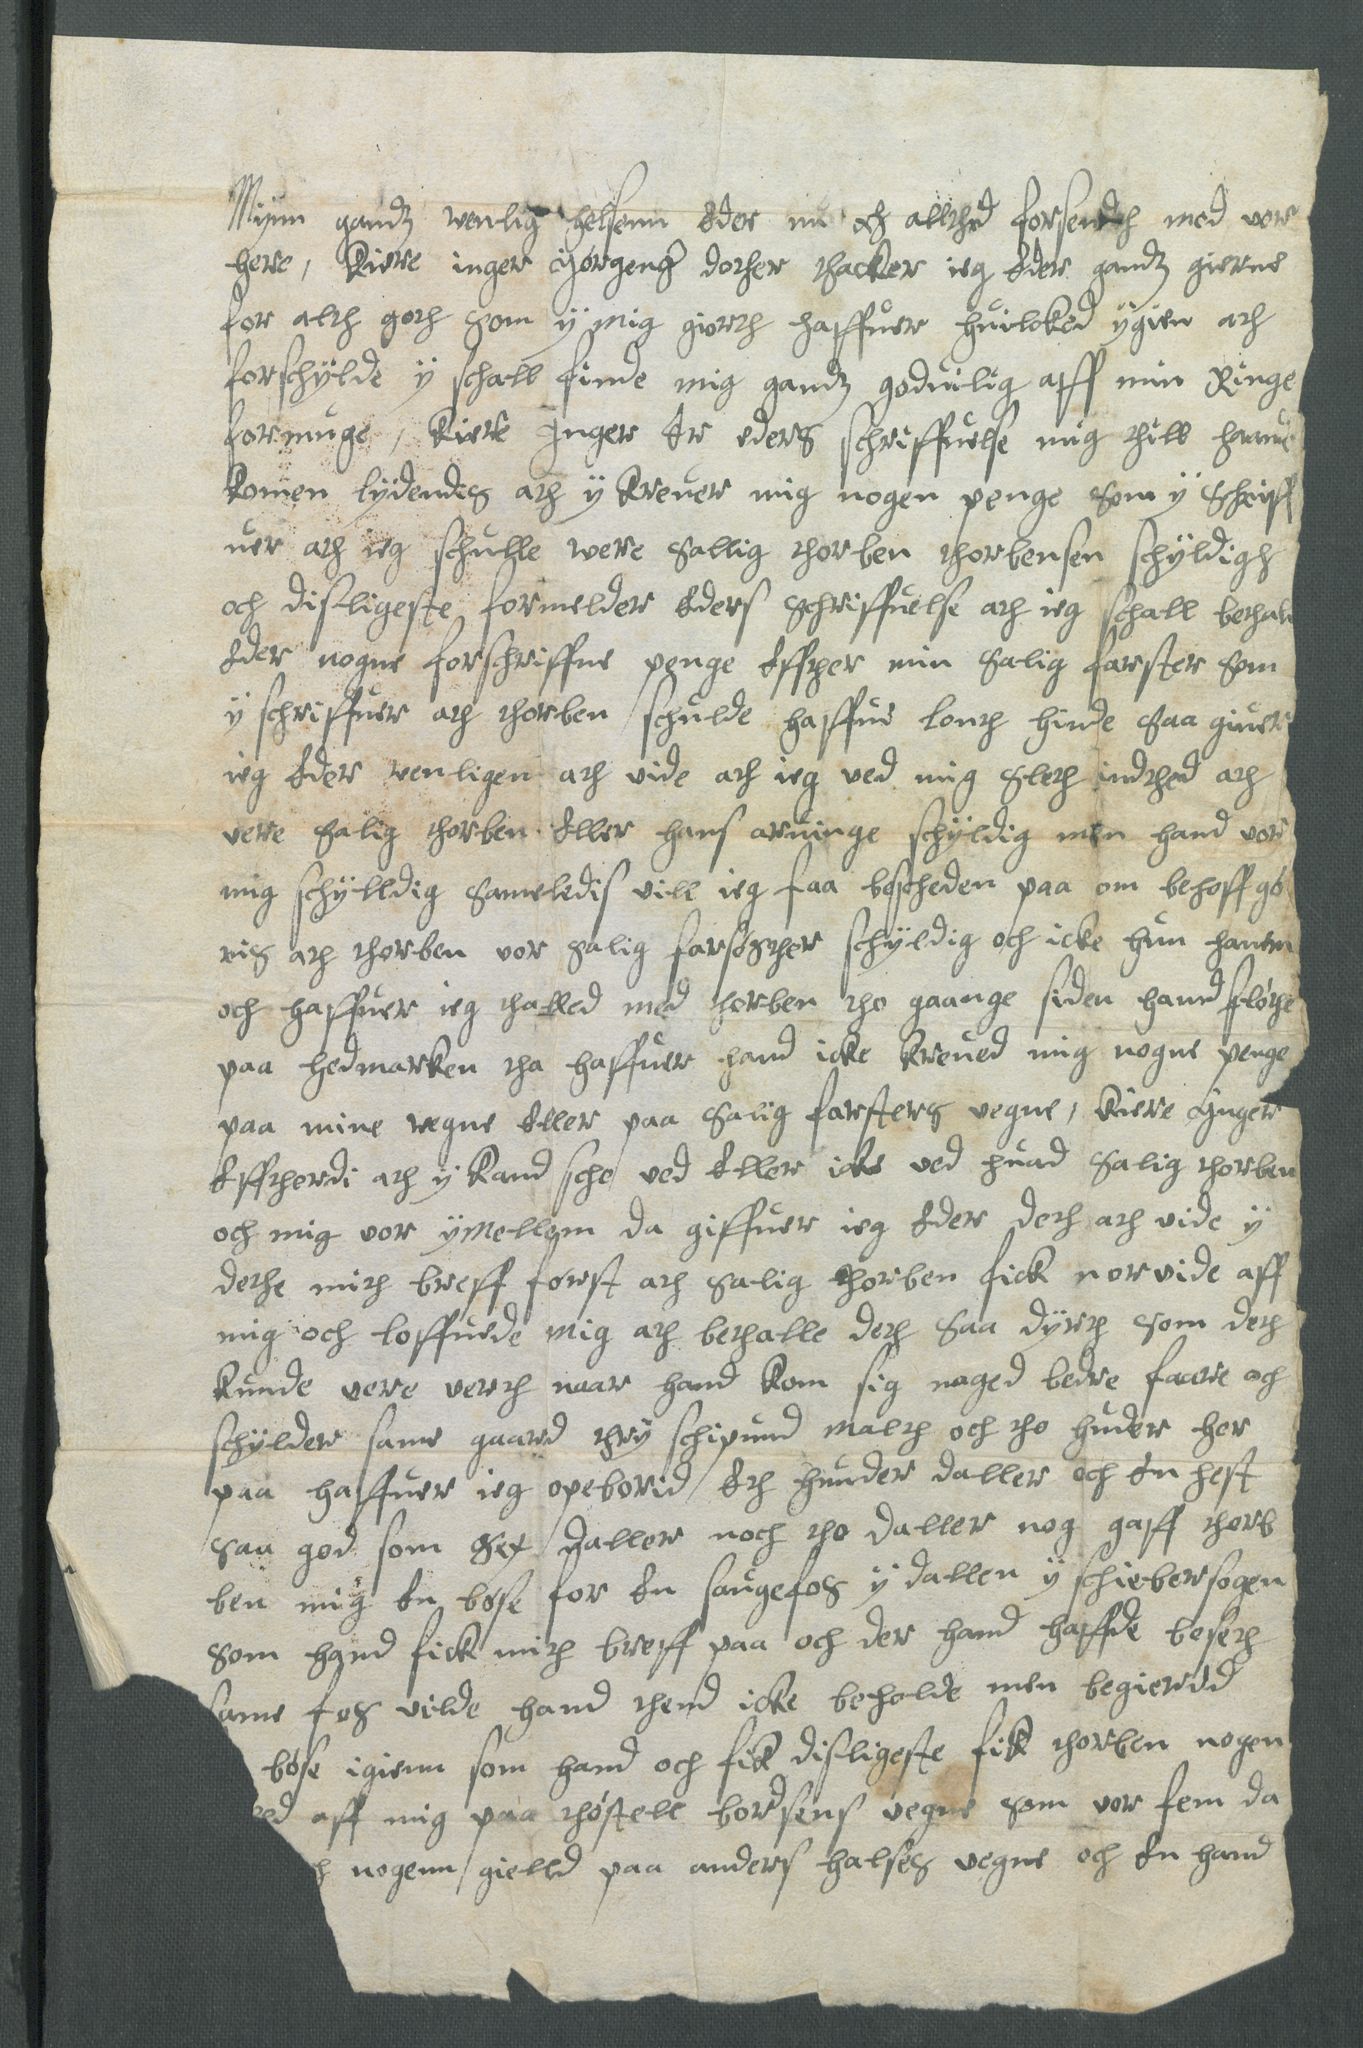 Mynn gandz venlig helsenn Eder nu och allthid forsendth med vor
here, Kiere inger Jørgens dother thacker ieg Eder gandz gierne
for alth goth som y mig giorth haffuer huilcked ygien ath
forschylde y schall finde mig gandz goduilig aff min Ringe
formuge, Kiere Inger Er eders schriffuelse mig thill haande
komen lydendes ath y kreuer mig nogen penge som y schriff
uer ath ieg schulle were sallig thorben thorbensen schyldigh
och disligeste formelder Eders schriffuelse ath ieg schall bethale
Eder nogne forschriffne penge Effther min salig farster som
y schriffuer ath thorben schulde haffue lonth hinde saa giuer
ieg Eder venligen ath vide ath ieg ved mig sleth indthed ath
vere salig thorben Eller hans aruinge schyldig men hand vor
mig schylldig sameledis vill ieg faa bescheden paa om behoff gø
ris ath thorben vor salig farsøster schyldig och icke hun hanem
och haffuer ieg thalled med thorben tho gaange siden hand fløthe
paa hedmarken tha haffuer hand icke kreued mig nogne penge
paa mine vegne Eller paa salig farsters vegne, Kiere Inger
Efftherdi ath y kand sche ved Eller icke ved huad salig thorben
och mig vor ymellom da giffuer ieg Eder deth ath vide y
dethe mith breff først ath salig thorben fick norvide aff
mig och loffuede mig ath bethalle deth saa dyrth som deth
kunde vere verth naar hand kom sig noged bedre faare och
schylder same gaard thry schipund malth och tho huder her
paa haffuer ieg opeborid Eth hunder daller och En hest
saa god som sex daller noch tho daller nog gaff thorb
ben mig En bøse for En saugefos y dallen y schiebersogen
som hand fick mith breff paa och der hand haffde beseth
same fos vilde hand thend icke beholde men begierdd
bøse igienn som hand och fik disligeste fik thorben nogen
aff mig paa thøstell bordsens vegne som vor fem da
nogenn gielld paa anders halses vegne och En hand